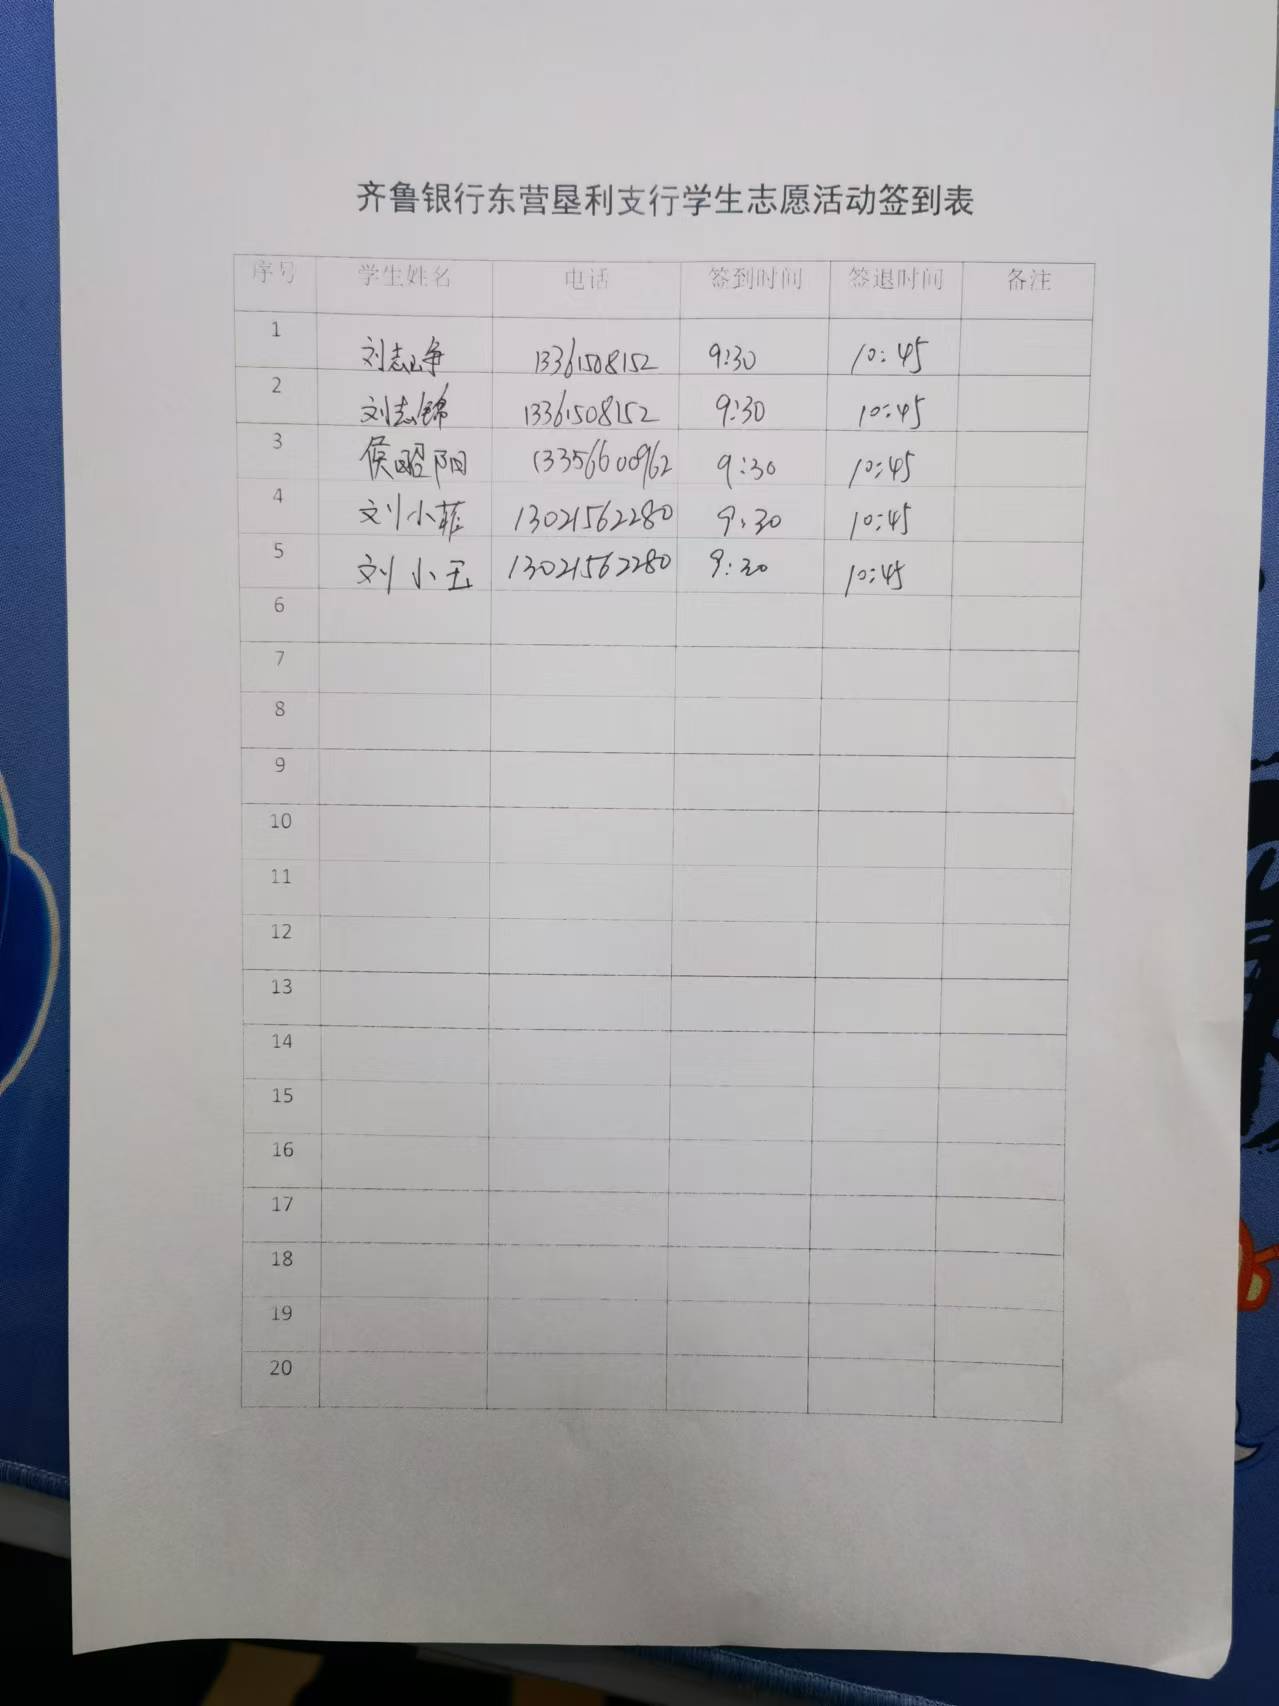 齐鲁银行东营垦利支行学生志愿活动签到表
序号 学生姓名 电话 签到时间 签退时间 备注
1 刘志峥 13361508152 9:30 10:45
2 刘志锦 13361508152 9:30 10:45
3 侯曜阳 13356600962 9:30 10:45
4 刘小菲 13021562280 9:30 10:45
5 刘小玉 13021562280 9:30 10:45
6
7
8
9
10
11
12
13
14
15
16
17
18
19
20